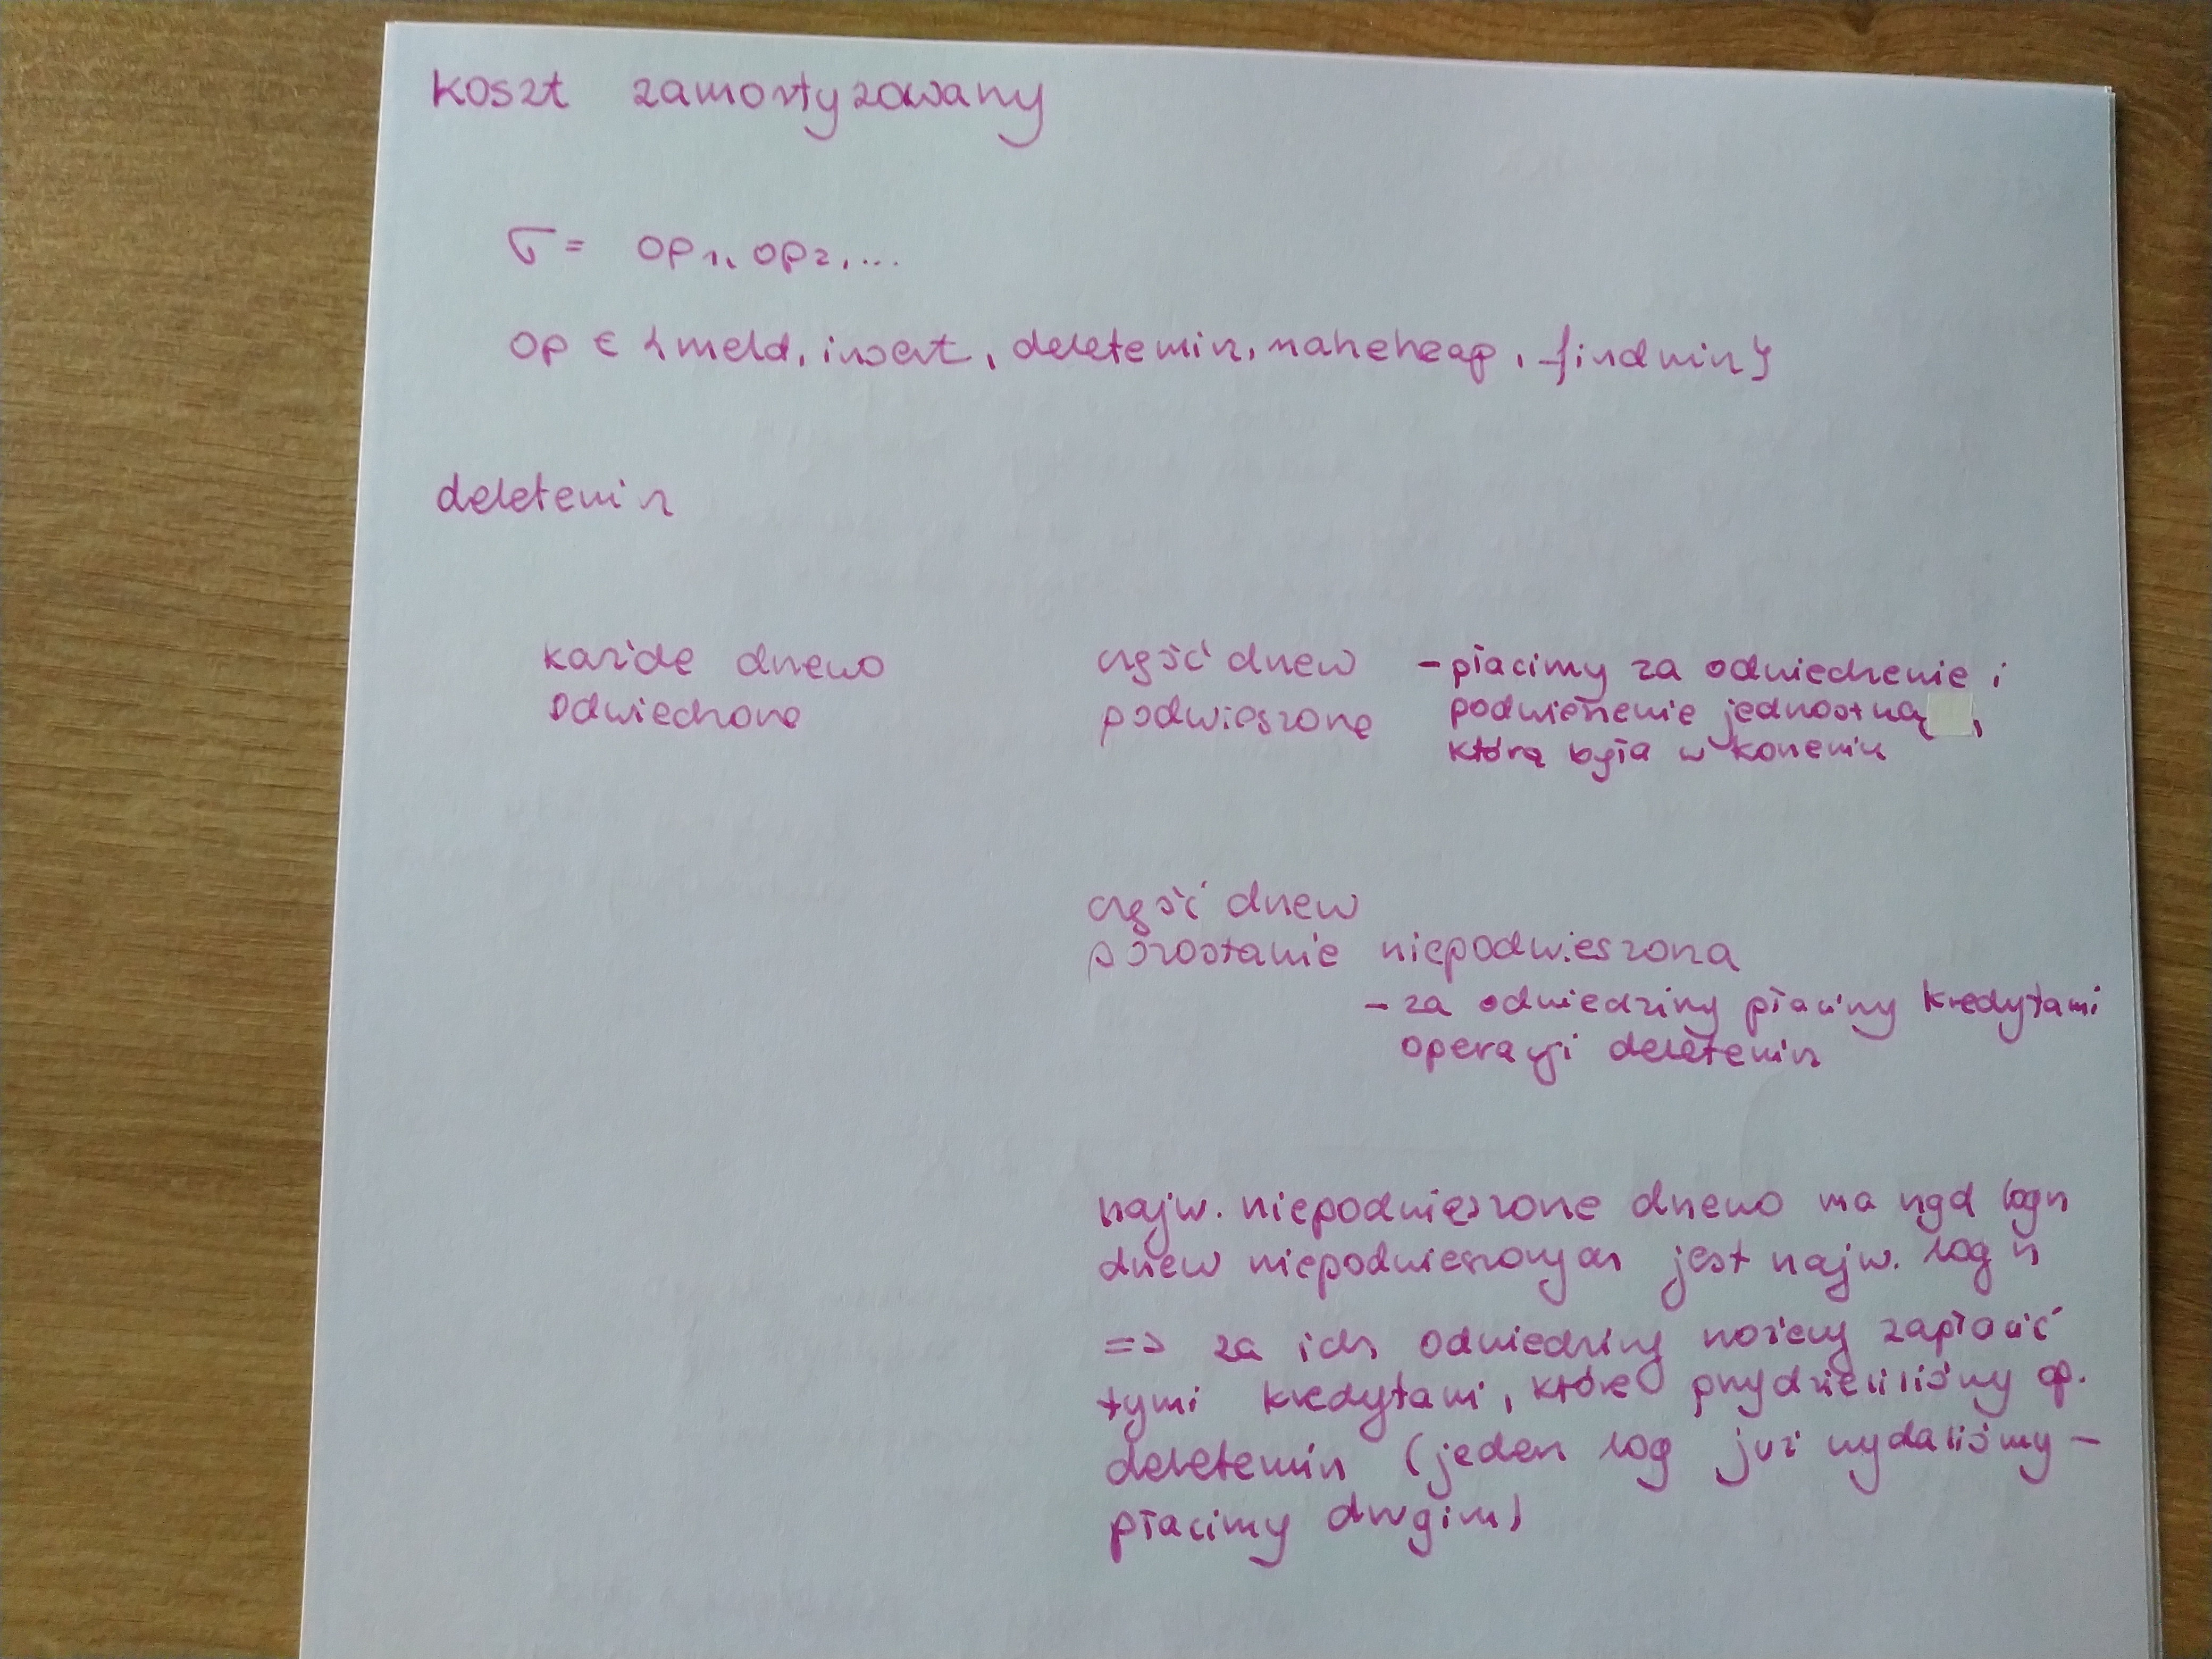 koszt zamortyzowany
σ = op₁, op₂, ...
op ∈ {meld, insert, deletemin, makeheap, findmin}
deletemin
każde drzewo
odwiedzone
część drzew
podwieszone
- płacimy za odwiedzenie i
podwieszenie jednostką,
która była w korzeniu
część drzew
pozostanie niepodwieszona
- za odwiedziny płacimy kredytami
operacji deletemin
najw. niepodwieszone drzewo ma rząd logn
drzew niepodwieszonych jest najw. log n
=> za ich odwiedziny możemy zapłacić
tymi kredytami, które przydzieliliśmy op.
deletemin (jeden log już wydaliśmy -
płacimy drugim)